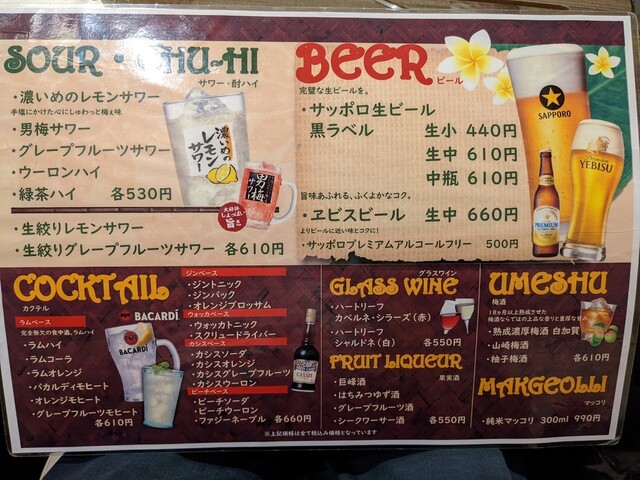 SOUR・CHU-HI
サワー・酎ハイ
・濃いめのレモンサワー
手塩にかけた心にしゅわっと梅ぇ味
・男梅サワー
・グレープフルーツサワー
・ウーロンハイ
・緑茶ハイ 各530円
・生絞りレモンサワー
・生絞りグレープフルーツサワー 各610円
濃いめの
レモン
サワー
男梅
サワー
旨さ
BEER ビール
完璧な生ビールを。
・サッポロ生ビール
黒ラベル 生小 440円
生中 610円
中瓶 610円
旨味あふれる、ふくよかなコク。
・ヱビスビール 生中 660円
よりビールに近い味とコクに!
・サッポロプレミアムアルコールフリー 500円
SAPPORO
YEBISU
PREMIUM
COCKTAIL
カクテル
ラムベース
完全無欠の食中酒、ラムハイ
・ラムハイ
・ラムコーラ
・ラムオレンジ
・バカルディモヒート
・オレンジモヒート
・グレープフルーツモヒート
各610円
BACARDÍ
BACARDÍ
ジンベース
・ジントニック
・ジンバック
・オレンジブロッサム
ウォッカベース
・ウォッカトニック
・スクリュードライバー
カシスベース
・カシスソーダ
・カシスオレンジ
・カシスグレープフルーツ
・カシスウーロン
ピーチベース
・ピーチソーダ
・ピーチウーロン
・ファジーネーブル 各660円
CASSIS
GLASS WINE
グラスワイン
・ハートリーフ
カベルネ・シラーズ(赤)
・ハートリーフ
シャルドネ(白) 各550円
FRUIT LIQUEUR
果実酒
・巨峰酒
・はちみつゆず酒
・グレープフルーツ酒
・シークワーサー酒 各550円
UMESHU
梅酒
18ヶ月以上熟成させた
梅酒ならではの上品な香りと重厚な甘み
・熟成濃厚梅酒 白加賀
・山崎梅酒
・柚子梅酒 各610円
MAKGEOLLI
マッコリ
・純米マッコリ 300ml 990円
※上記価格は全て税込み価格となっています